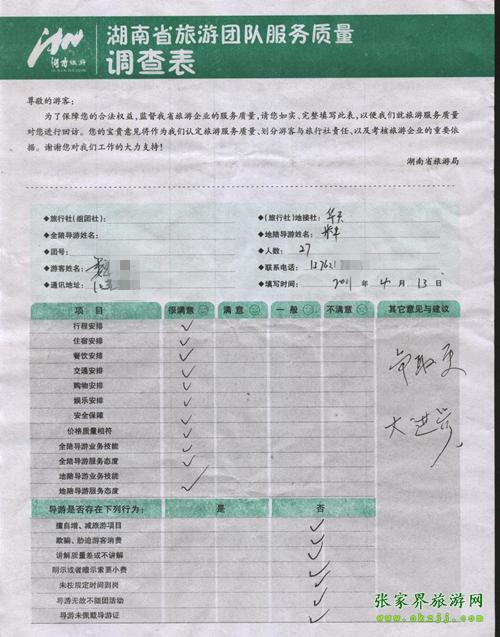 湖南旅游
湖南省旅游团队服务质量
调查表
尊敬的游客：
为了保障您的合法权益，监督我省旅游企业的服务质量，请您如实、完整填写此表，以便我们就旅游服务质量
对您进行回访。您的宝贵意见将作为我们认定旅游服务质量、划分游客与旅行社责任、以及考核旅游企业的重要依
据。谢谢您对我们工作的大力支持！
湖南省旅游局
◆旅行社(组团社)： ◆(旅行社)地接社：华天
◆全陪导游姓名： ◆地陪导游姓名：
◆团号： ◆人数：27
◆游客姓名： ◆联系电话：13762
◆通讯地址： ◆填写时间：2011 年 4 月 13 日
项 目 很满意 满 意 一 般 不满意 其它意见与建议
行程安排 ✓
住宿安排 ✓
餐饮安排 ✓
交通安排 ✓
购物安排 ✓
娱乐安排 ✓
安全保障 ✓
价格质量相符 ✓
全陪导游业务技能 ✓
全陪导游服务态度 ✓
地陪导游业务技能 ✓
地陪导游服务态度
争取更
大进步
导游是否存在下列行为： 是 否
擅自增、减旅游项目 ✓
欺骗、胁迫游客消费 ✓
讲解质量差或不讲解 ✓
明示或者暗示索要小费 ✓
未按规定时间到岗 ✓
导游无故不随团活动 ✓
导游未佩戴导游证 ✓
张家界旅游网
www.okzjj.com